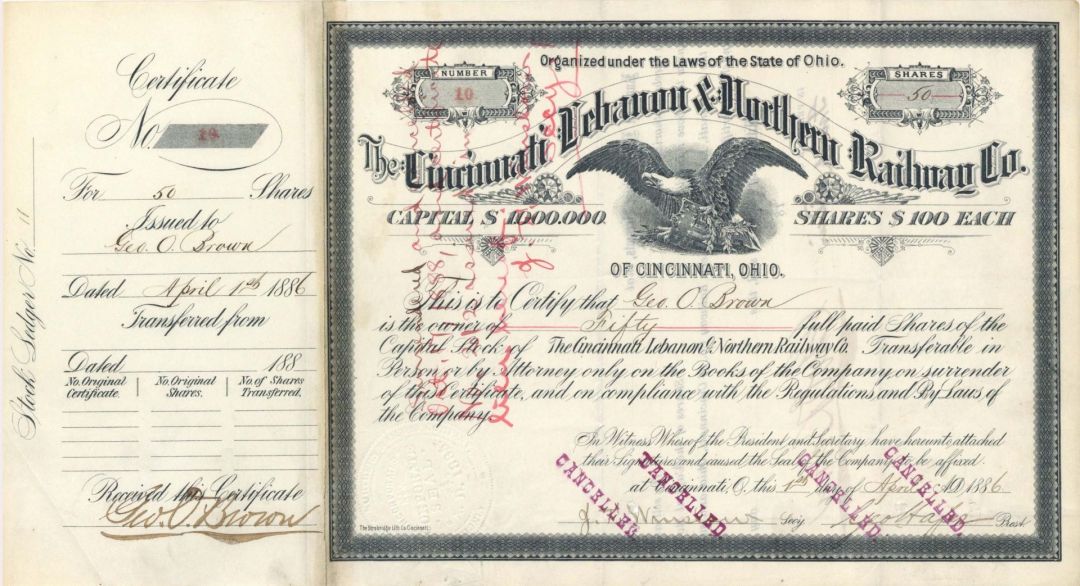 Stock Ledger No. 11
Certificate
No. 10
For 50 Shares
Issued to
Geo. O. Brown
Dated April 1st 1886
Transferred from
Dated 188
No. Original Certificate.
No. Original Shares.
No. of Shares Transferred.
Received this Certificate
Geo. O. Brown
Organized under the Laws of the State of Ohio.
NUMBER
10
SHARES
50
The Cincinnati Lebanon & Northern Railway Co.
CAPITAL $ 1000.000.
SHARES $ 100 EACH
OF CINCINNATI, OHIO.
This is to Certify that Geo. O. Brown
is the owner of Fifty full paid Shares of the
Capital Stock of The Cincinnati Lebanon & Northern Railway Co. Transferable in
Person or by Attorney only on the Books of the Company on surrender
of this Certificate, and on compliance with the Regulations and By Laws of
the Company.
In Witness Whereof the President and Secretary have hereunto attached
their Signatures and caused the Seal of the Company to be affixed.
at Cincinnati, O. this 1st day of April AD, 1886.
Secy.
Geo Hafer Prest.
CANCELLED
CANCELLED
CANCELLED
CANCELLED
The Strobridge Lith. Co. Cincinnati.